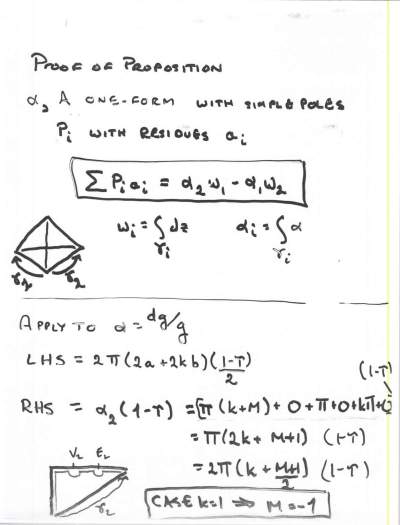 PROOF OF PROPOSITION
α, A ONE-FORM WITH SIMPLE POLES
Pi WITH RESIDUES ai
∑ Pi ai = α2 ω1 - α1 ω2
ωi = ∫γi dz αi = ∫γi α
γ2 γ2
APPLY TO α = dg/g
LHS = 2π(2a+2kb)(1-τ)/2
(1-τ)
RHS = α2(1-τ) = [π(k+M)+0+π+0+kπ+0
= π(2k+M+1) (1-τ)
= 2π(k+M+1/2) (1-τ)
V2 E2
γ2
CASE k=1 ⇒ M=-1